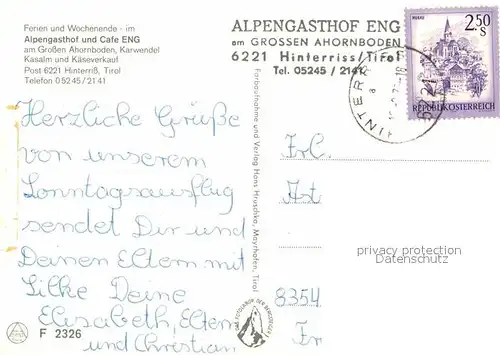 Ferien und Wochenende - im
Alpengasthof und Cafe ENG
am Großen Ahornboden, Karwendel
Kasalm und Käseverkauf
Post 6221 Hinterriß, Tirol
Telefon 05245/2141
ALPENGASTHOF ENG
am GROSSEN AHORNBODEN
6221 Hinterriss/Tirol
Tel. 05245 / 2141
MURAU
2.50
S
REPUBLIK ÖSTERREICH
Herzliche Grüße
von unserem
Sonntagsausflug
sendet Dir und
Deinen Eltern mit
Silke Deine
Elisabeth, Eltern
und Christian
F 2326
Farbaufnahme und Verlag Hans Hruschka, Mayrhofen, Tirol
Frl.
privacy protection
Datenschutz
8354